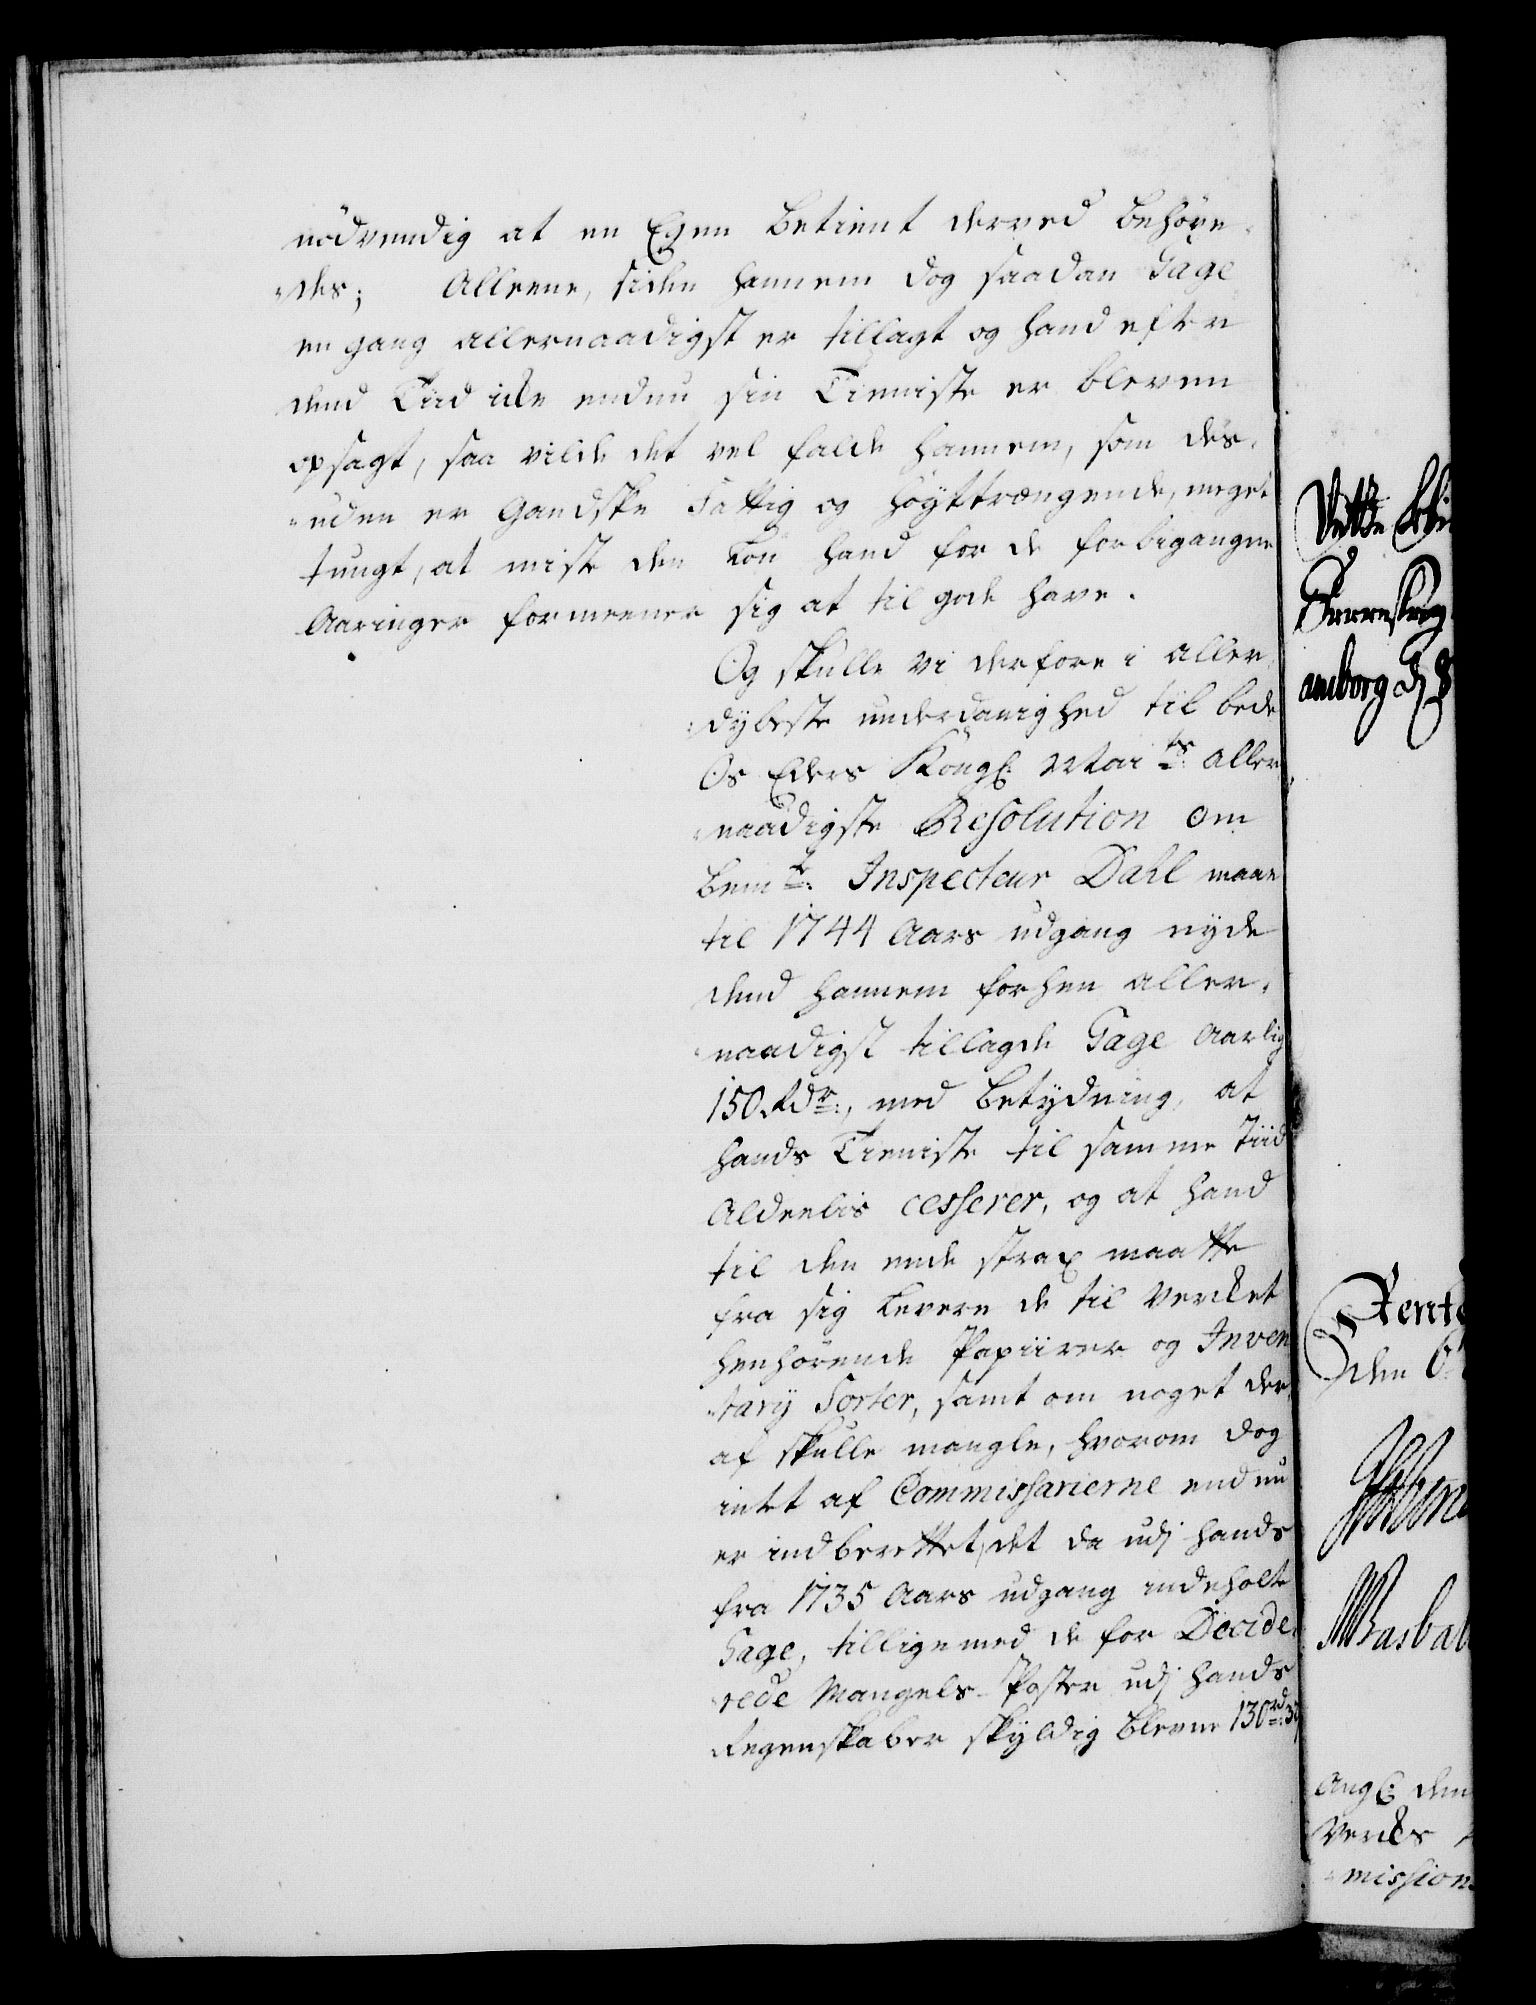 nödvendig at en Egen betient derved behöve-
-des; Alleene, siden hannem dog saadan Gage
en gang allernaadigst er tillagt og hand efter
dend Tiid icke endnu sin Tieniste er bleven
opsagt, saa vilde det vel falde hannem, som des-
-uden er Gandske Fattig og höyttrængende, meget
tungt, at miste den Lön hand for de forbigangne
Aaringer formeener sig at til gode have.
Og skulle vi derfore i aller-
-dybeste underdanighed til bede
Os Eders Kongl: Mai:ts aller-
-naadigste Resolution om
bem:te Inspecteur Dahl maae
til 1744 Aars udgang nyde
dend hannem forhen aller-
-naadigst tillagde Gage Aarlig
150 Rdr:, med betydning, at
hands Tieniste til samme Tiid
Aldeelis cesserer, og at hand
til den ende strax maatte
fra sig levere de til Verket
henhörende Papiirer og Inven-
-tarij Sorter, samt om noget der-
af skulle mangle, hvorom dog
intet af Commissarierne endnu
er indberettet, det da udj hands
fra 1735 Aars udgang indeholte
Gage, tilligemed de for Decide-
-rede Mangels-Poster udj hands
Regenskaber skyldig blevne 130 rd:
amborg d
Rente
den 6
Angl: den
Verks
-mission